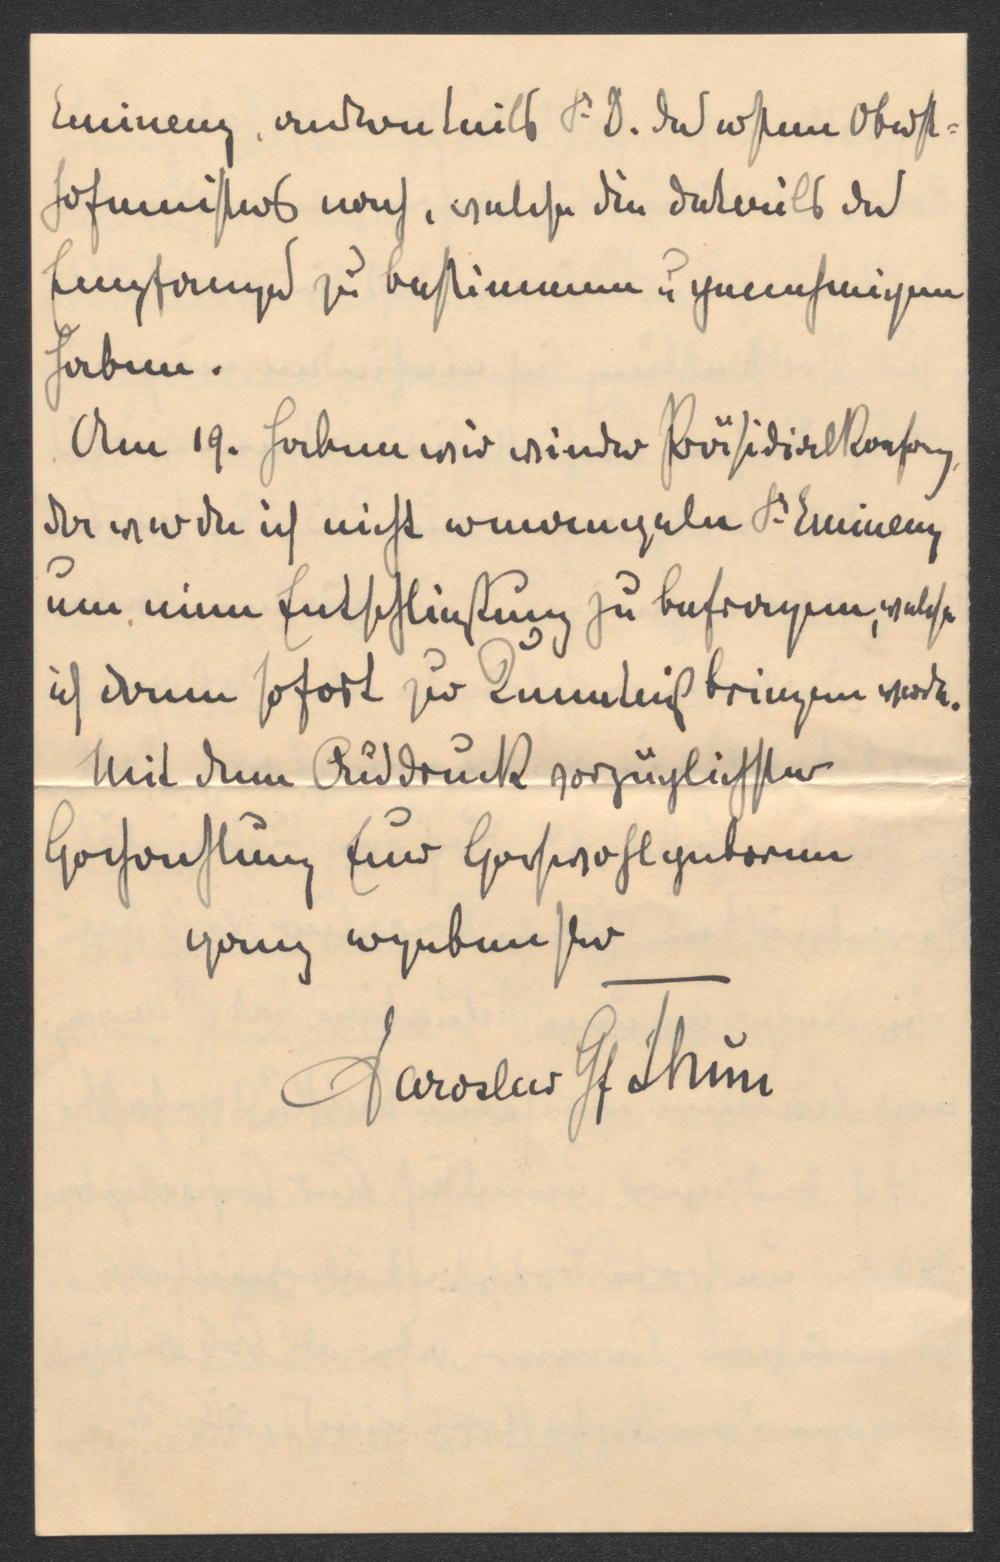 Eminenz, anderntheils Sr D. des ersten Oberst-
hofmeisters nach, welche die Details des
Empfanges zu bestimmen u genehmigen
haben.
Am 19. haben wir wieder Präsidialkonferenz,
da werde ich nicht ermangeln Sr Eminenz
um eine Entschließung zu befragen, welche
ich dann sofort zur Kenntniß bringen werde.
Mit dem Ausdruck vorzüglichster
Hochachtung Euer Hochwohlgeboren
ganz ergebenster
Jaroslav Gf Thun